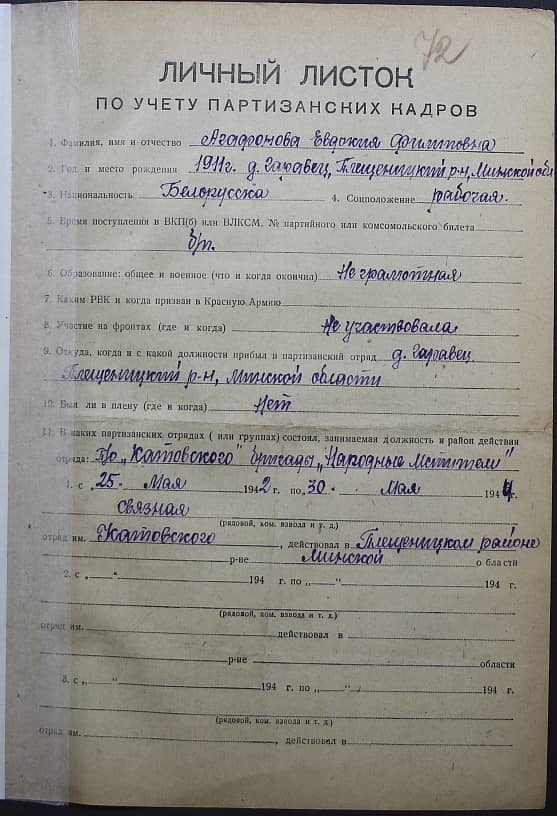 72
ЛИЧНЫЙ ЛИСТОК
ПО УЧЕТУ ПАРТИЗАНСКИХ КАДРОВ
1. Фамилия, имя и отчество Агафонова Евдокия Филипповна
2. Год и место рождения 1911г. д. Гаравец, Плещеницкий р-н, Минской обл
3. Национальность Белорусска 4. Соцположение рабочая.
5. Время поступления в ВКП(б) или ВЛКСМ, № партийного или комсомольского билета
б/п.
6. Образование: общее и военное (что и когда окончил) Не грамотная
7. Каким РВК и когда призван в Красную Армию
8. Участие на фронтах (где и когда) Не участвовала
9. Откуда, когда и с какой должности прибыл в партизанский отряд д. Гаравец
Плещеницкий р-н, Минской области
10. Был ли в плену (где и когда) Нет
11. В каких партизанских отрядах ( или группах) состоял, занимаемая должность и район действия
отряда: П/о „Катовского" бригады „Народные Мстители"
1. с „25. Мая 1942 г. по „30. Мая 1944 г.
связная
(рядовой, ком. взвода и т. д.)
отряд им. Катовского, действовал в Плещеницком районе
р-не Минской области
2. с „ " 194 г. по „ " 194 г.
(рядовой, ком. взвода и т. д.)
отряд им. действовал в
р-не области
3. с „ " 194 г. по „ " 194 г.
(рядовой, ком. взвода и т. д.)
отряд им. , действовал в